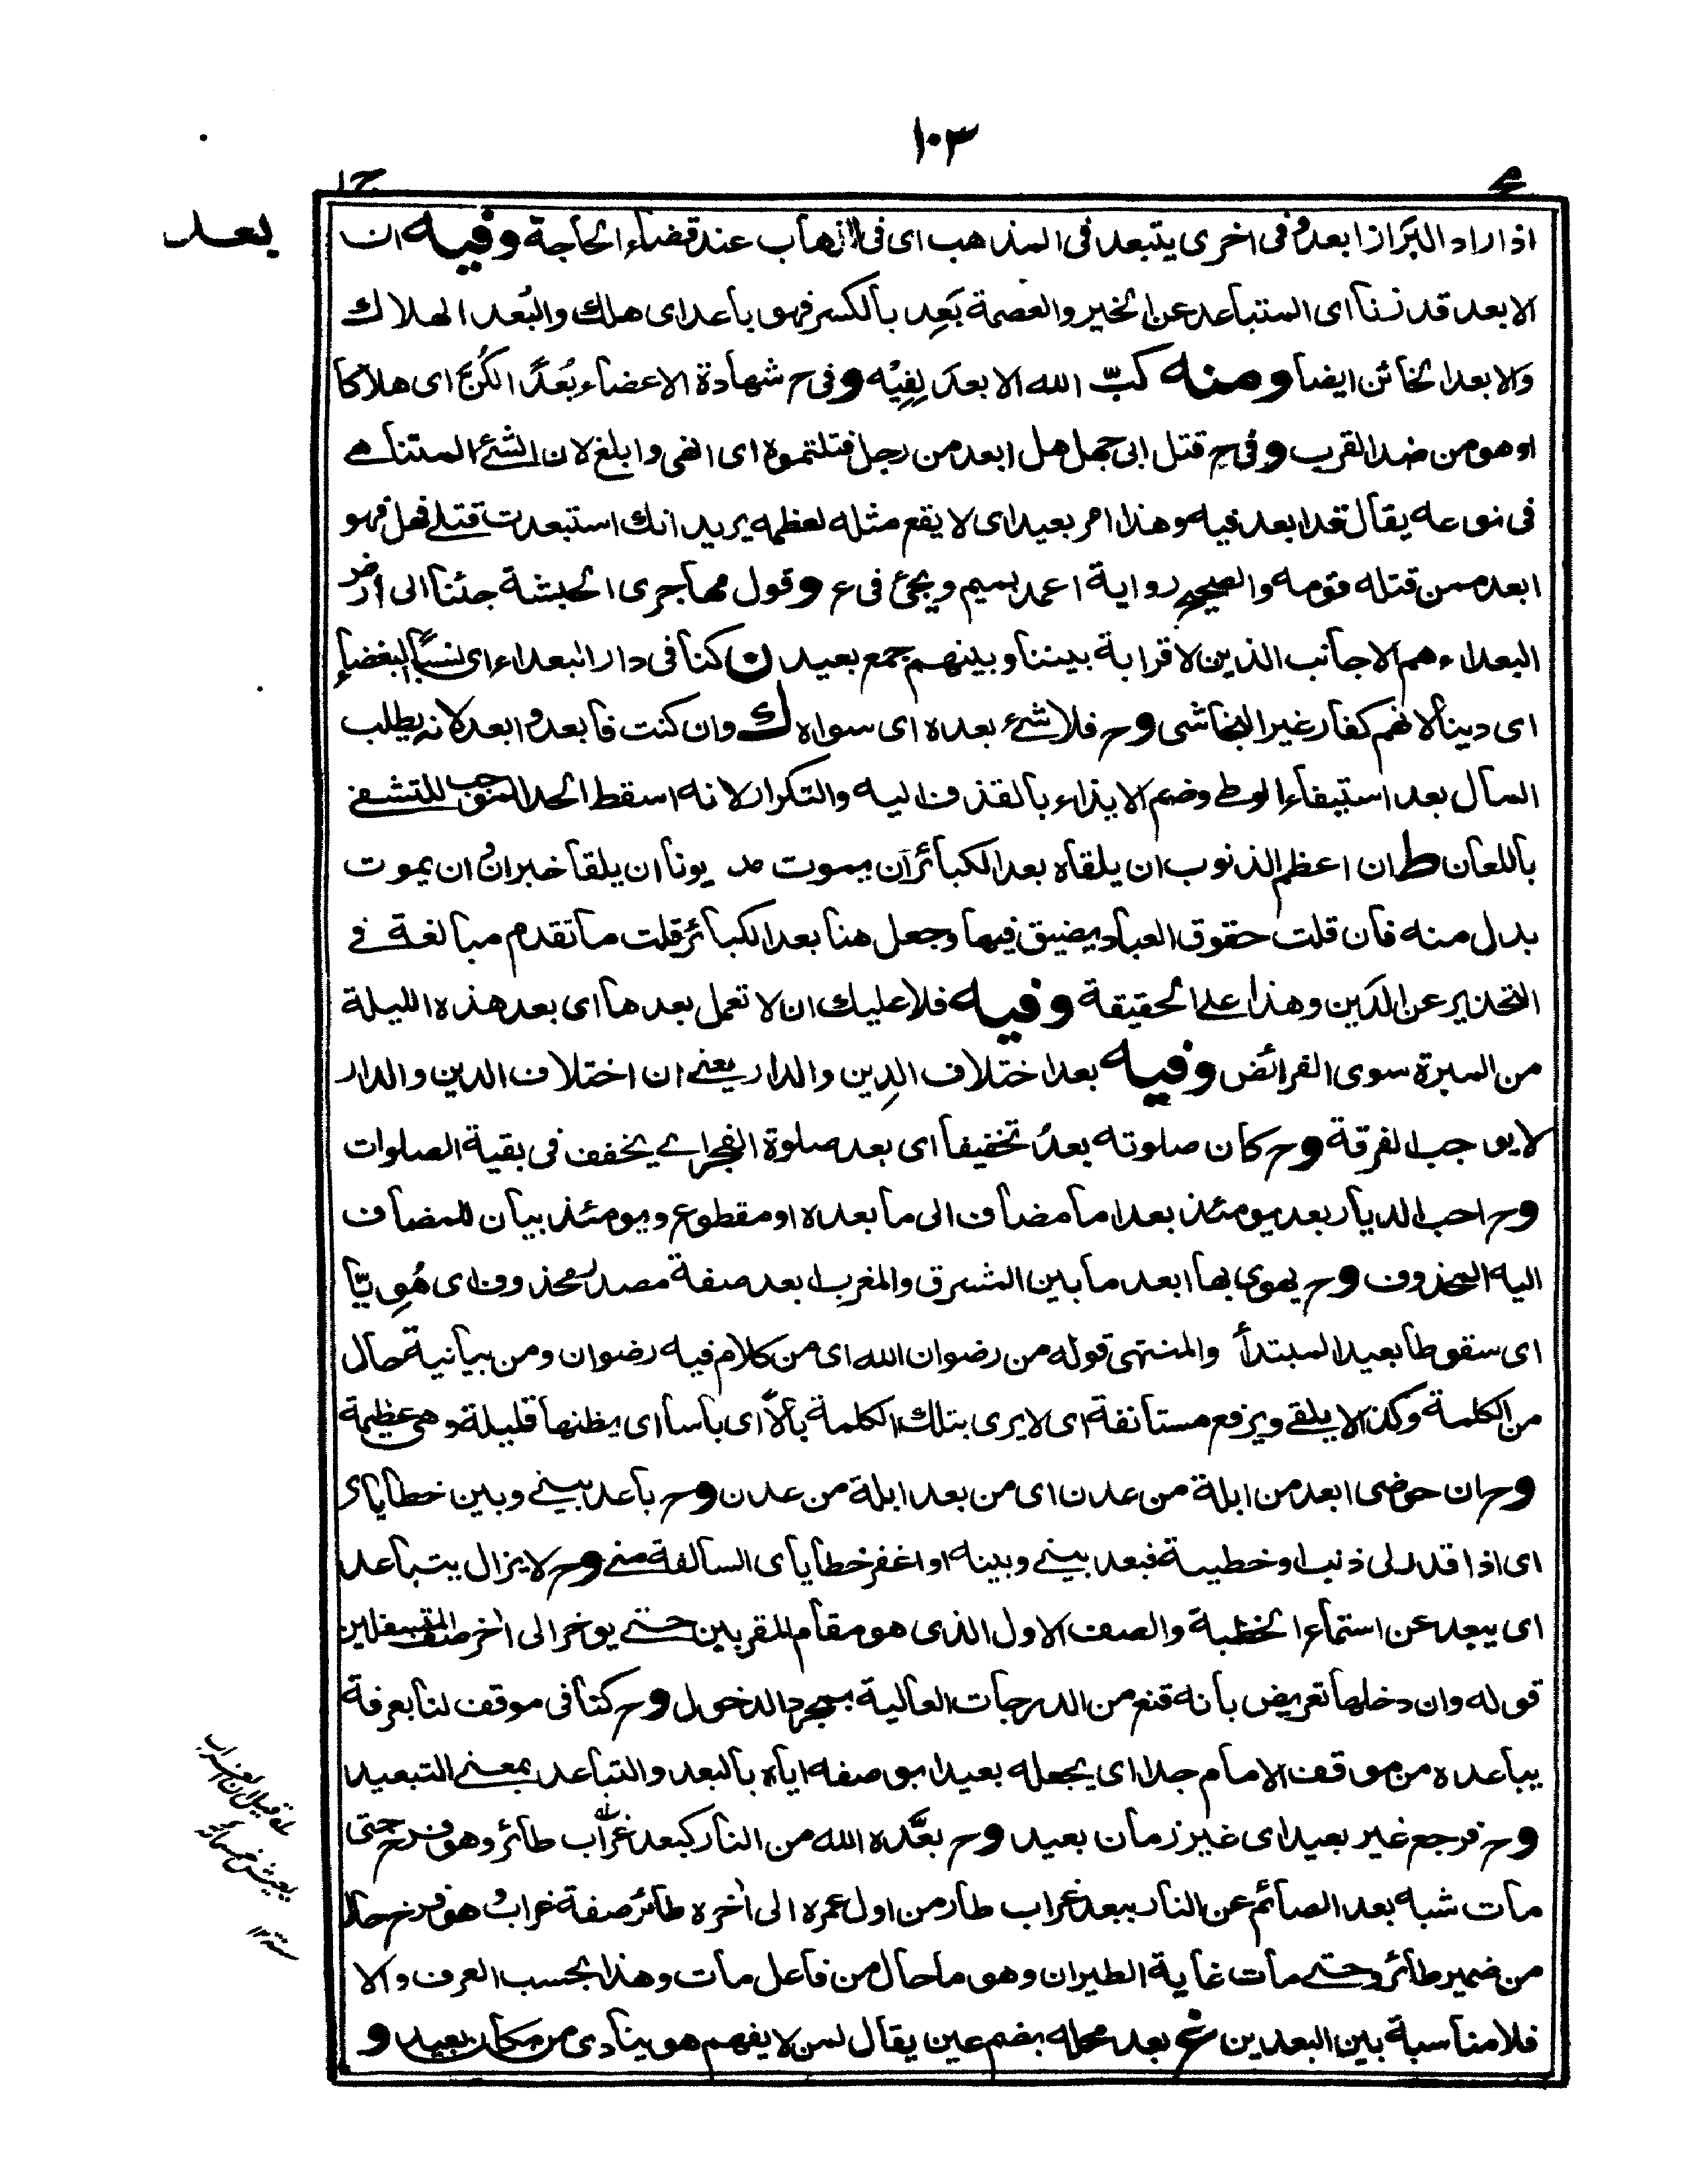 ١٠٣
ج ١
بعد
اذا اراد البَراز ابعد و فى اخرى يتبعد فى المذهب اى فى الذهاب عند قضاء الحاجة وفيه ان
الابعد قد زنا اى المتباعد عن الخير والعصمة بَعِد بالكسر فهو باعد اى هلك والبُعد الهلاك
والابعد الخائن ايضا ومنه كبّ الله الابعدَ لِفِيْه وفى ح شهادة الاعضاء بُعدًا لكُنّ اى هلاكا
او هو من ضد القرب وفى ح قتل ابى جهل هل ابعد من رجل قتلتموه اى انهى وابلغ لان الشئ المتناهى
فى نوعه يقال قد ابعد فيه وهذا امر بعيد اى لا يقع مثله لعظمه يريد انك استبعدت قتلى فهل هو
ابعد ممن قتله قومه والصحيح رواية اعمد بميم ويجئ فى ع وقول مهاجرى الحبشة جئنا الى ارض
البعداء هم الاجانب الذين لا قرابة بيننا وبينهم جمع بعيد ن كنا فى دار البعداء اى نسبًا البغضاء
اى دينا لانهم كفار غير النجاشى وح فلا شئ بعده اى سواه ك وان كنت فابعد و ابعد لانه يطلب
المال بعد استيفاء الوطى وضم الايذاء بالقذف اليه والتكرار لانه اسقط الحد الموجب للتشفى
باللعان ط ان اعظم الذنوب ان يلقاه بعد الكبائر ان يموت مد يونا ان يلقا خبر ان و ان يموت
بدل منه فان قلت حقوق العباد يضيق فيها وجعل هنا بعد الكبائر قلت ما تقدم مبالغة فى
التحذير عن الدَين وهذا على الحقيقة وفيه فلا عليك ان لا تعمل بعدها اى بعد هذه الليلة
من المبرة سوى الفرائض وفيه بعد اختلاف الدِين والدار يعنى ان اختلاف الدين والدار
لا يوجب الفرقة وح كان صلوته بعدُ تخفيفا اى بعد صلوة الفجر اى يخفف فى بقية الصلوات
وح احب الديار بعد يومئذ بعد اما مضاف الى ما بعده او مقطوع ويومئذ بيان للمضاف
اليه المحذوف وح يهوى بها ابعد ما بين المشرق والمغرب ابعد صفة مصدر محذوف اى هُوِيّا
اى سقوطا بعيد المبتدأ والمنتهى قوله من رضوان الله اى من كلام فيه رضوان ومن بيانية حال
من الكلمة وكذا لا يلقى ويرفع مستانفة اى لا يرى بتلك الكلمة بالًا اى باسا اى يظنها قليلة وهى عظيمة
وح ان حوضى ابعد من ايلة من عدن اى من بعد ايلة من عدن وح باعد بينى وبين خطاياى
اى اذا قدر لى ذنب او خطيئة فبعد بينى وبينه او اغفر خطاياى السالفة منى وح لا يزال يتباعد
اى يبعد عن استماع الخطبة والصف الاول الذى هو مقام المقربين حتى يوخر الى اخر صف المتسفلين
قوله وان دخلها تعريض بانه قنع من الدرجات العالية بمجرد الدخول وح كنا فى موقف لنا بعرفة
يباعده من موقف الامام جدا اى يجعله بعيدا بوصفه اياه بالبعد والتباعد بمعنى التبعيد
وح فرجع غير بعيد اى غير زمان بعيد وح بعّده الله من النار كبعد غراب طائر وهو فرخ حتى
مات شبه بعد الصائم عن النار ببعد غراب طار من اول عمره الى اخره طائر صفة غراب و هو فرخ حال
من ضمير طائر وحتى مات غاية الطيران وهو ما حال من فاعل مات وهذا بحسب العرف والا
فلا مناسبة بين البعدين غ بعد محله بضم عين يقال لمن لا يفهم هو ينادى من مكان بعيد و
قيل ان الغراب
يعيش